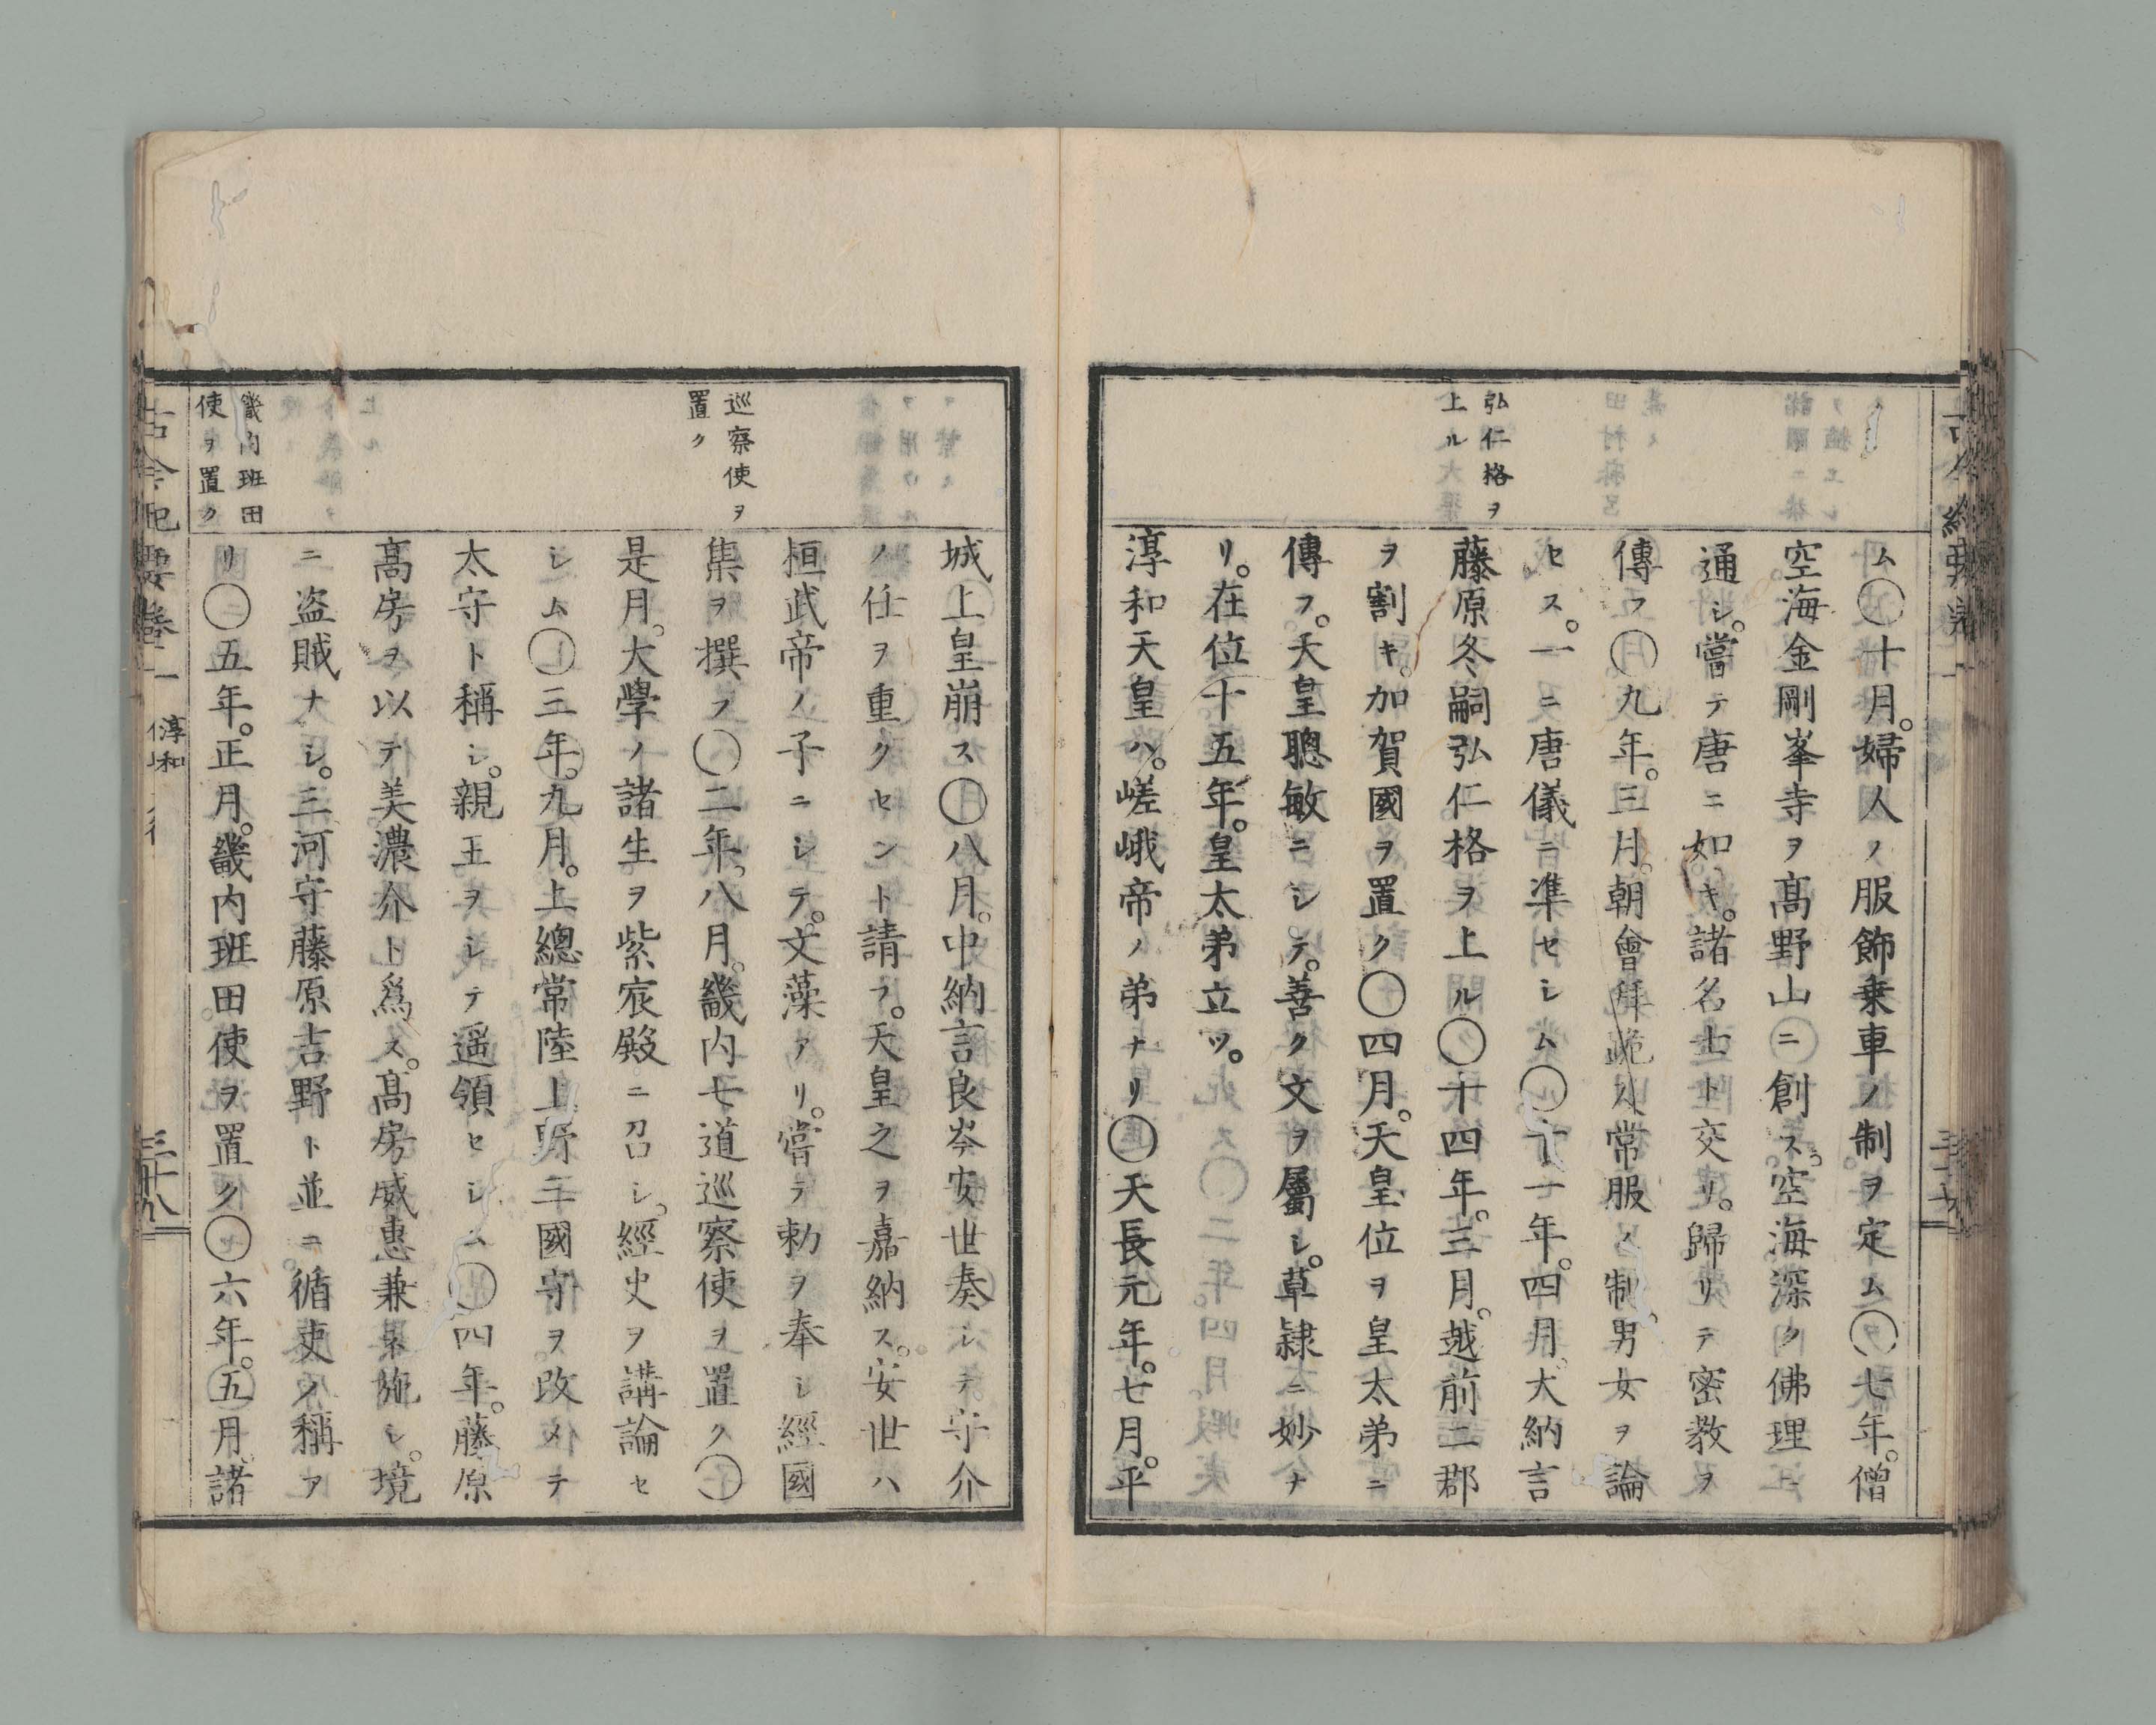 弘仁格ヲ
上ル
ム〇十月。婦人ノ服飾乗車ノ制ヲ定ム〇七年。僧
空海金剛峯寺ヲ髙野山ニ創ス。空海深ク佛理ニ
通シ。嘗テ唐ニ如キ。諸名士ト交リ。歸リテ密教ヲ
傳フ〇九年。三月。朝會拜跪及常服ノ制。男女ヲ論
セス。一ニ唐儀ニ準セシム〇十一年。四月。大納言
藤原冬嗣弘仁格ヲ上ル〇十四年。三月。越前二郡
ヲ割キ。加賀國ヲ置ク〇四月。天皇位ヲ皇太弟ニ
傳フ。天皇聰敏ニシテ。善ク文ヲ屬シ。草隷ニ妙ナ
リ。在位十五年。皇太弟立ツ。
淳和天皇ハ。嵯峨帝ノ弟ナリ〇天長元年。七月。平
巡察使ヲ
置ク
畿内班田
使ヲ置ク
城上皇崩ス〇八月。中納言良岑安世奏シテ。守介
ノ任ヲ重クセント請フ。天皇之ヲ嘉納ス。安世ハ
桓武帝ノ子ニシテ。文藻アリ。嘗テ勅ヲ奉シ經國
集ヲ撰フ〇二年。八月。畿内七道巡察使ヲ置ク〇
是月。大學ノ諸生ヲ紫宸殿ニ召シ。經史ヲ講論セ
シム〇三年。九月。上總常陸上野三國守ヲ改メテ
太守ト稱シ。親王ヲシテ遥領セシム〇四年。藤原
髙房ヲ以テ美濃介ト爲ス。髙房威惠兼施シ。境
ニ盗賊ナシ。三河守藤原吉野ト並ニ循吏ノ稱ア
リ〇五年。正月。畿内班田使ヲ置ク〇六年。五月。諸
古今紀要卷一 淳和 三十八